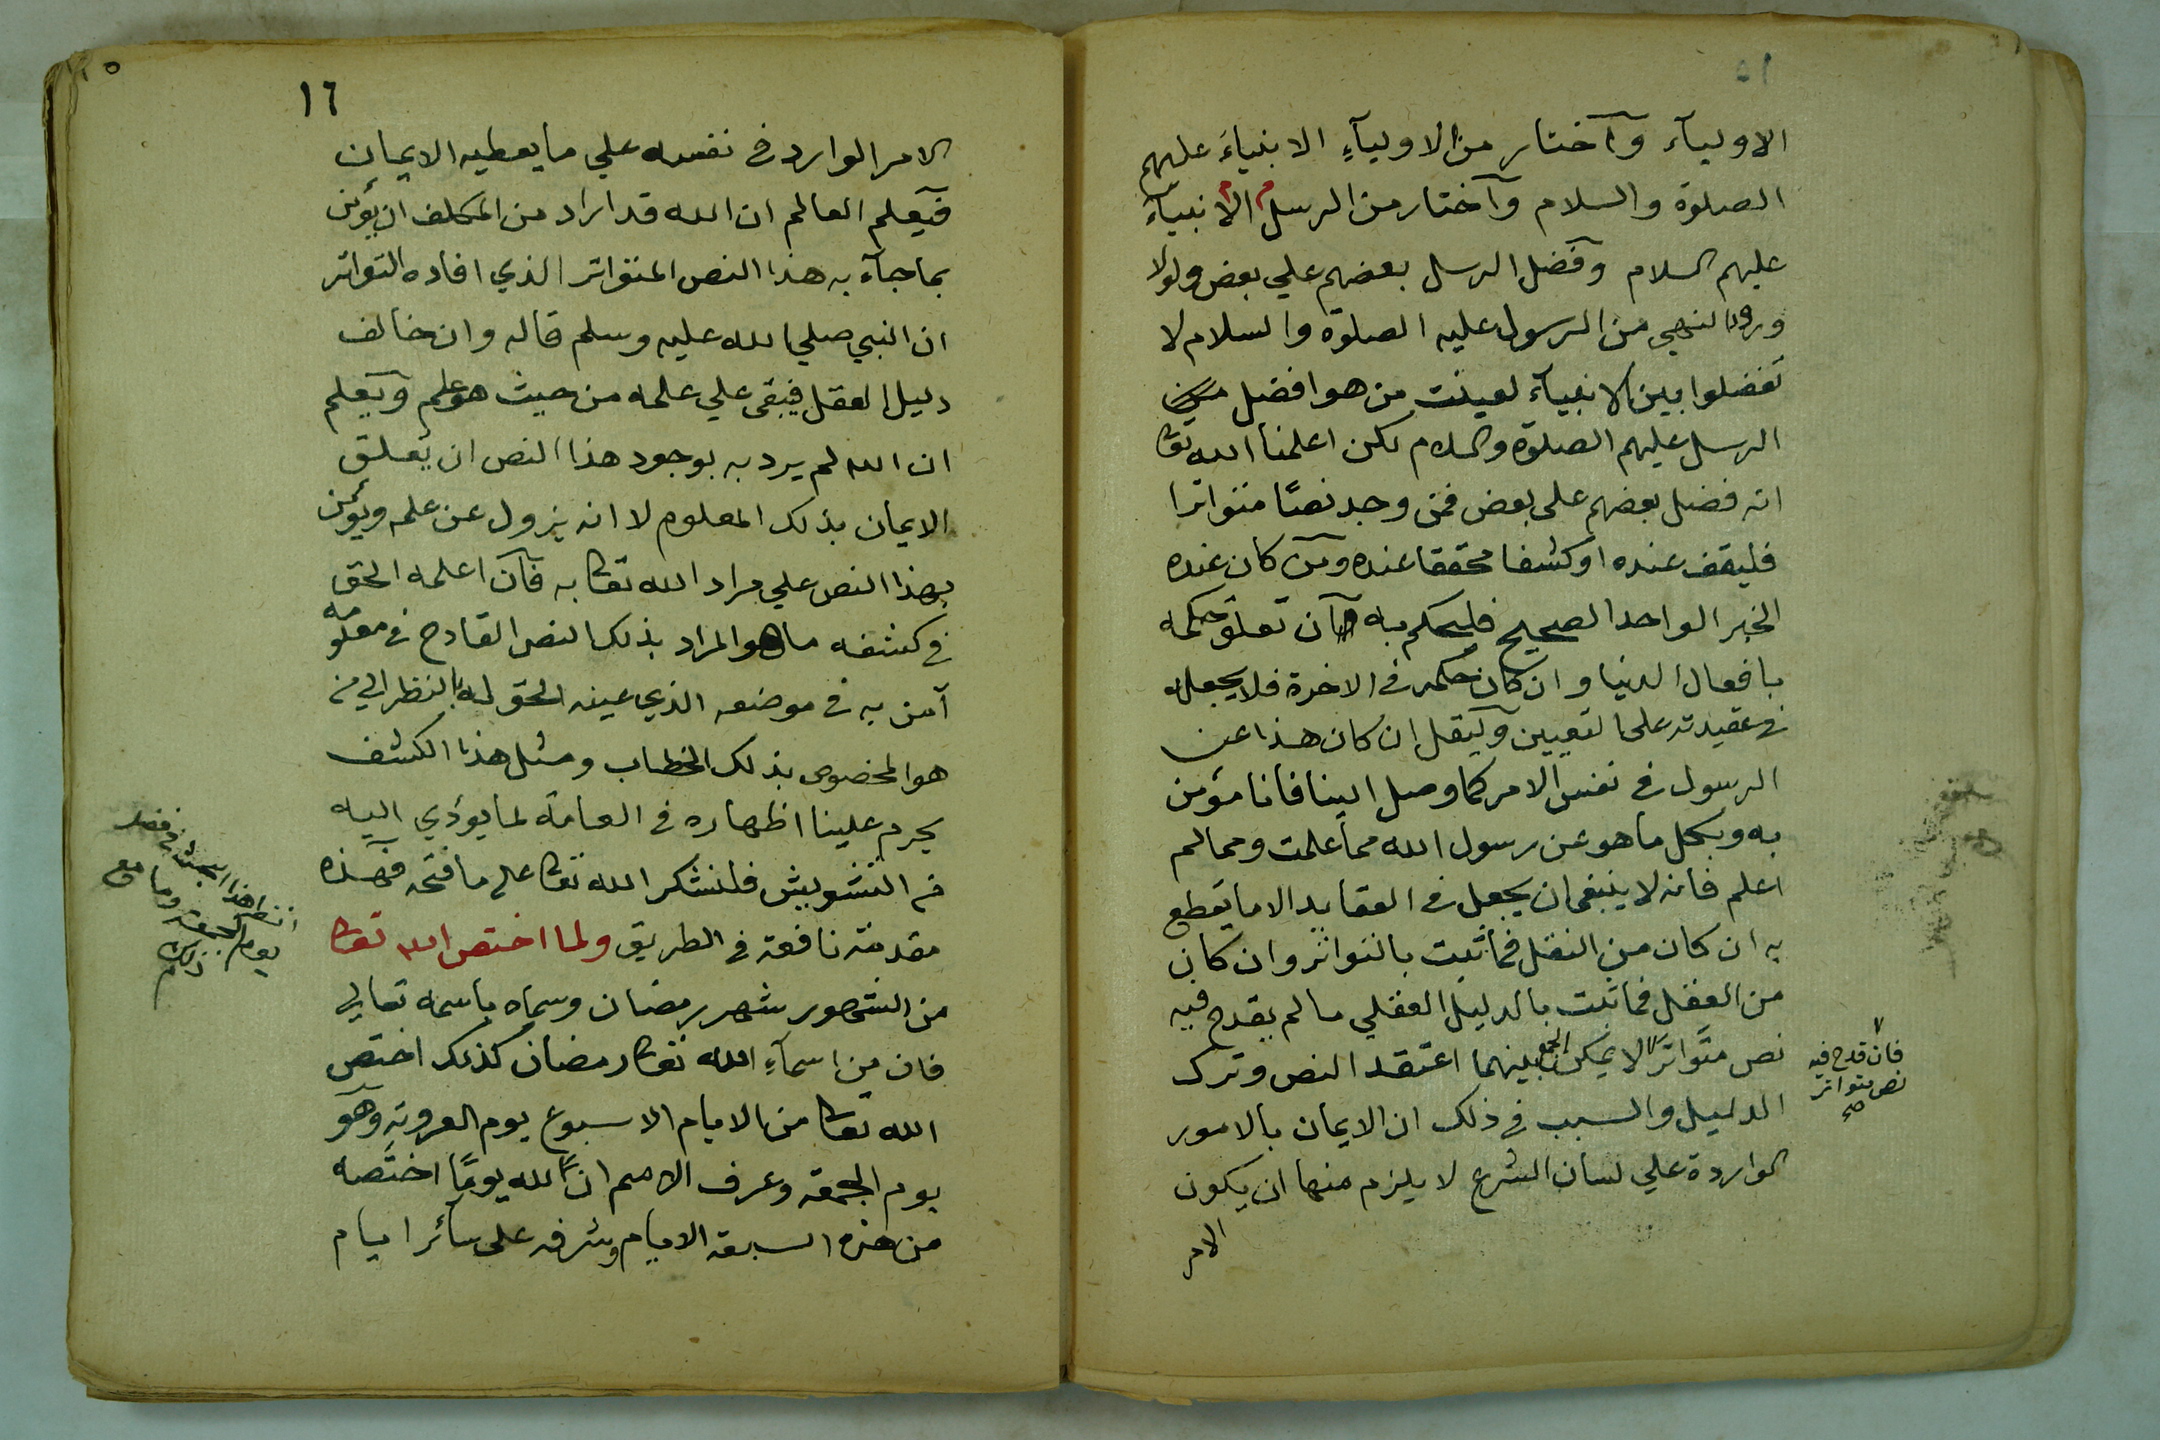 ١٥
الاوليآء وآختار من الاوليآءِ الانبياءَ عليهم
الصلوة والسلام وآختار من الرسل الانبياءَ
عليهم السلام وفضل الرسل بعضهم علي بعض ولولا
ورود النهي من الرسول عليه الصلوة والسلام لا
تفضلوا بين الانبيآء لعينت من هو افضل من
الرسل عليهم الصلوة والسلام لكن اعلمنا الله تعا
انه فضل بعضهم على بعض فمن وجد نصًا متواترا
فليقف عنده او كشفا محققا عنده ومن كان عنده
الخبر الواحد الصحيح فليحكم به ان تعلق حكمه
بافعال الدنيا وان كان حكمه في الاخرة فلا يجعله
في عقيدته على التعيين وليقل ان كان هذا عن
الرسول في نفس الامر كما وصل الينا فانا مؤمن
به وبكل ما هو عن رسول الله مما علمت ومما لم
اعلم فانه لا ينبغي ان يجعل في العقايد الا ما يقطع
به ان كان من النقل فما ثبت بالتواتر وان كان
من العقل فما ثبت بالدليل العقلي ما لم يقدح فيه
نص متواتر لا يمكن الجمع بينهما اعتقد النص وترك
الدليل والسبب في ذلك ان الايمان بالامور
الواردة علي لسان الشرع لا يلزم منها ان يكون
الامر
فان قدح فيه
نص متواتر
صح
١٦
الامر الوارد في نفسه علي ما يعطيه الايمان
فيعلم العالم ان الله قد اراد من المكلف ان يؤمن
بما جآء به هذا النص المتواتر الذي افاده التواتر
ان النبي صلي الله عليه وسلم قاله وان خالف
دليل العقل فيبقى علي علمه من حيث هو علم ويعلم
ان الله لم يرد به بوجود هذا النص ان يعلق
الايمان بذلك المعلوم لا انه يزول عن علمه ويؤمن
بهذا النص علي مراد الله تعا به فان اعلمه الحق
في كشفه ما هو المراد بذلك النص القادح في معلومه
آمن به في موضعه الذي عينه الحق له بالنظر الي من
هو المخصوص بذلك الخطاب ومثل هذا الكشف
يحرم علينا اظهاره في العامة لما يؤدي اليه
من التشويش فلنشكر الله تعا على ما فتحه فهذه
مقدمة نافعة في الطريق ولما اختص الله تعا
من الشهور شهر رمضان وسماه باسمه تعالي
فان من اسمآءِ الله تعا رمضان كذلك اختص
الله تعا من الايام الاسبوع يوم العروبةِ وهو
يوم الجمعة وعرف الامم ان لله يومًا اختصه
من هذه السبعة الايام وشرفه على سائر ايام
انظر هذا البحث في فضل
يوم الجمعة وما مع
ذلك